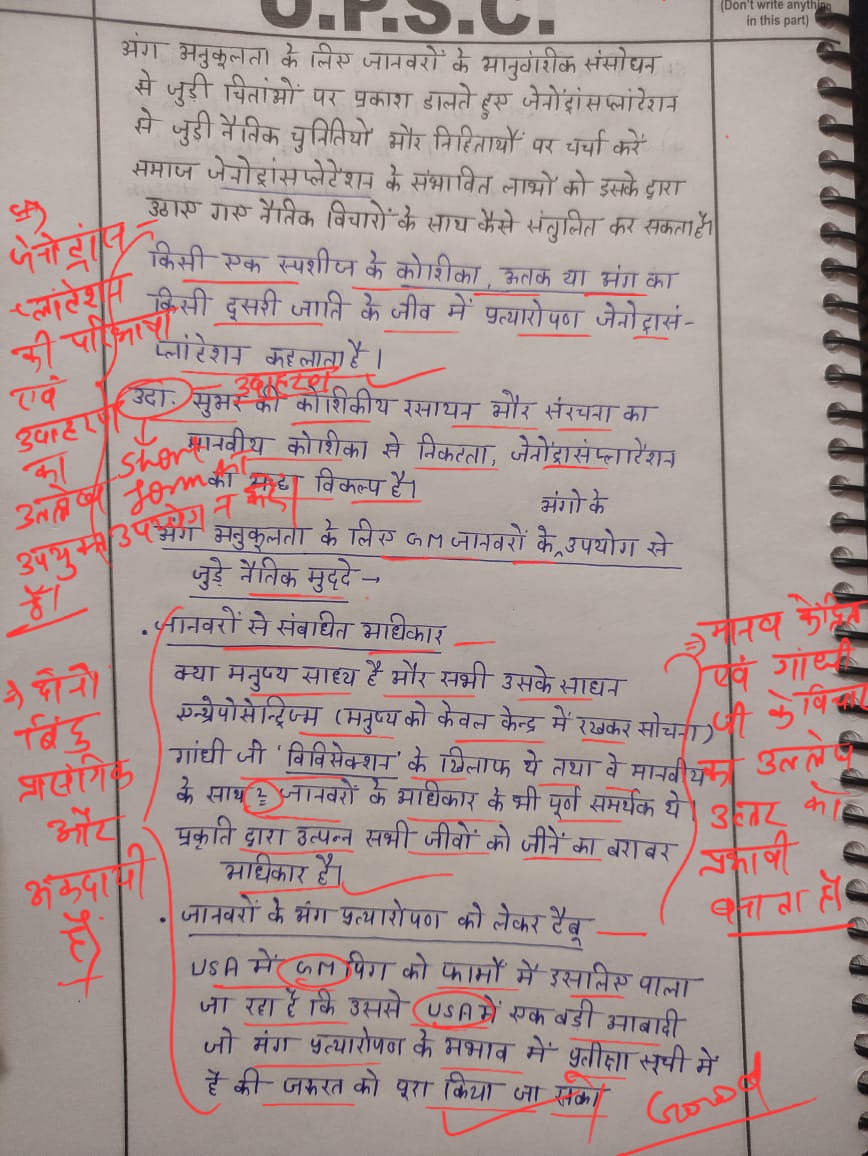 U.P.S.C.
(Don't write anything
in this part)
अंग अनुकूलता के लिए जानवरों के आनुवांशीक संसोधन
से जुड़ी चिंताओं पर प्रकाश डालते हुए जेनोट्रांसप्लांटेशन
से जुड़ी नैतिक चुनितियों और निहितार्थों पर चर्चा करें
समाज जेनोट्रांसप्लेटेशन के संभावित लाभों को इसके द्वारा
उठाए गए नैतिक विचारों के साथ कैसे संतुलित कर सकता है।
किसी एक स्पशीज के कोशिका, ऊतक या अंग का
किसी दुसरी जाति के जीव में प्रत्यारोपण जेनोट्रासं-
प्लांटेशन कहलाता है।
उदाहरण
उदा. सुअर की कोशिकीय रसायन और संरचना का
मानवीय कोशिका से निकटता, जेनोट्रासंप्लाटेंशन
का विकल्प है।
short
form का
उपयोग न करें
अंगो के
अंग अनुकूलता के लिए GM जानवरों के उपयोग से
जुड़े नैतिक मुद्दे →
जेनोट्रांस-
प्लांटेशन
की परिभाषा
एवं
उदाहरण
का
उल्लेख
उपयुक्त
है।
• जानवरों से संबंधित अधिकार
क्या मनुष्य साध्य है और सभी उसके साधन
एन्थ्रेपोसेन्ट्रिज्म (मनुष्य को केवल केन्द्र में रखकर सोचना)
गांधी जी 'विविसेक्शन' के खिलाफ थे तथा वे मानवीय
के साथ २ जानवरों के अधिकार के भी पूर्ण समर्थक थे।
प्रकृति द्वारा उत्पन्न सभी जीवों को जीनें का बराबर
अधिकार है।
⇒ मानव केंद्रित
एवं गांधी
जी के विचार
का उल्लेख
उत्तर को
प्रभावी
बनाता है।
→ दोनों
बिंदु
प्रासंगिक
और
अंकदायी
हैं।
• जानवरों के अंग प्रत्यारोपण को लेकर टैबू
USA में GM पिग को फार्मों में इसलिए पाला
जा रहा है कि उससे USA में एक बड़ी आबादी
जो अंग प्रत्यारोपण के अभाव में प्रतीक्षा सूची में
है की जरुरत को पूरा किया जा सके।
Good